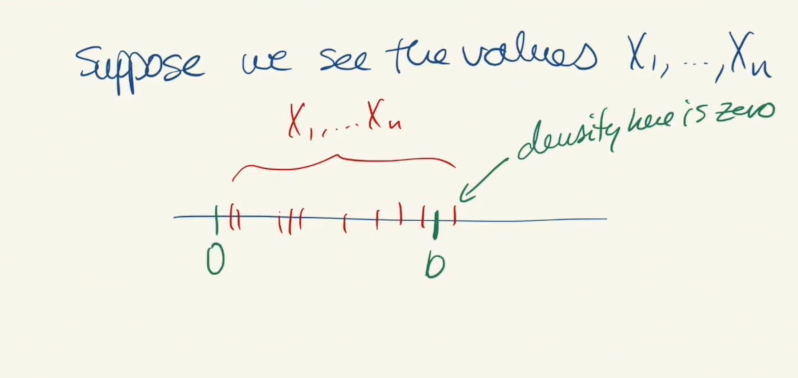 Suppose we see the values X₁, ..., Xₙ
X₁, ... Xₙ
density here is zero
0
b